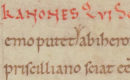 KANONES QVI D
emo putet ab ihero
priscilliano sciat e